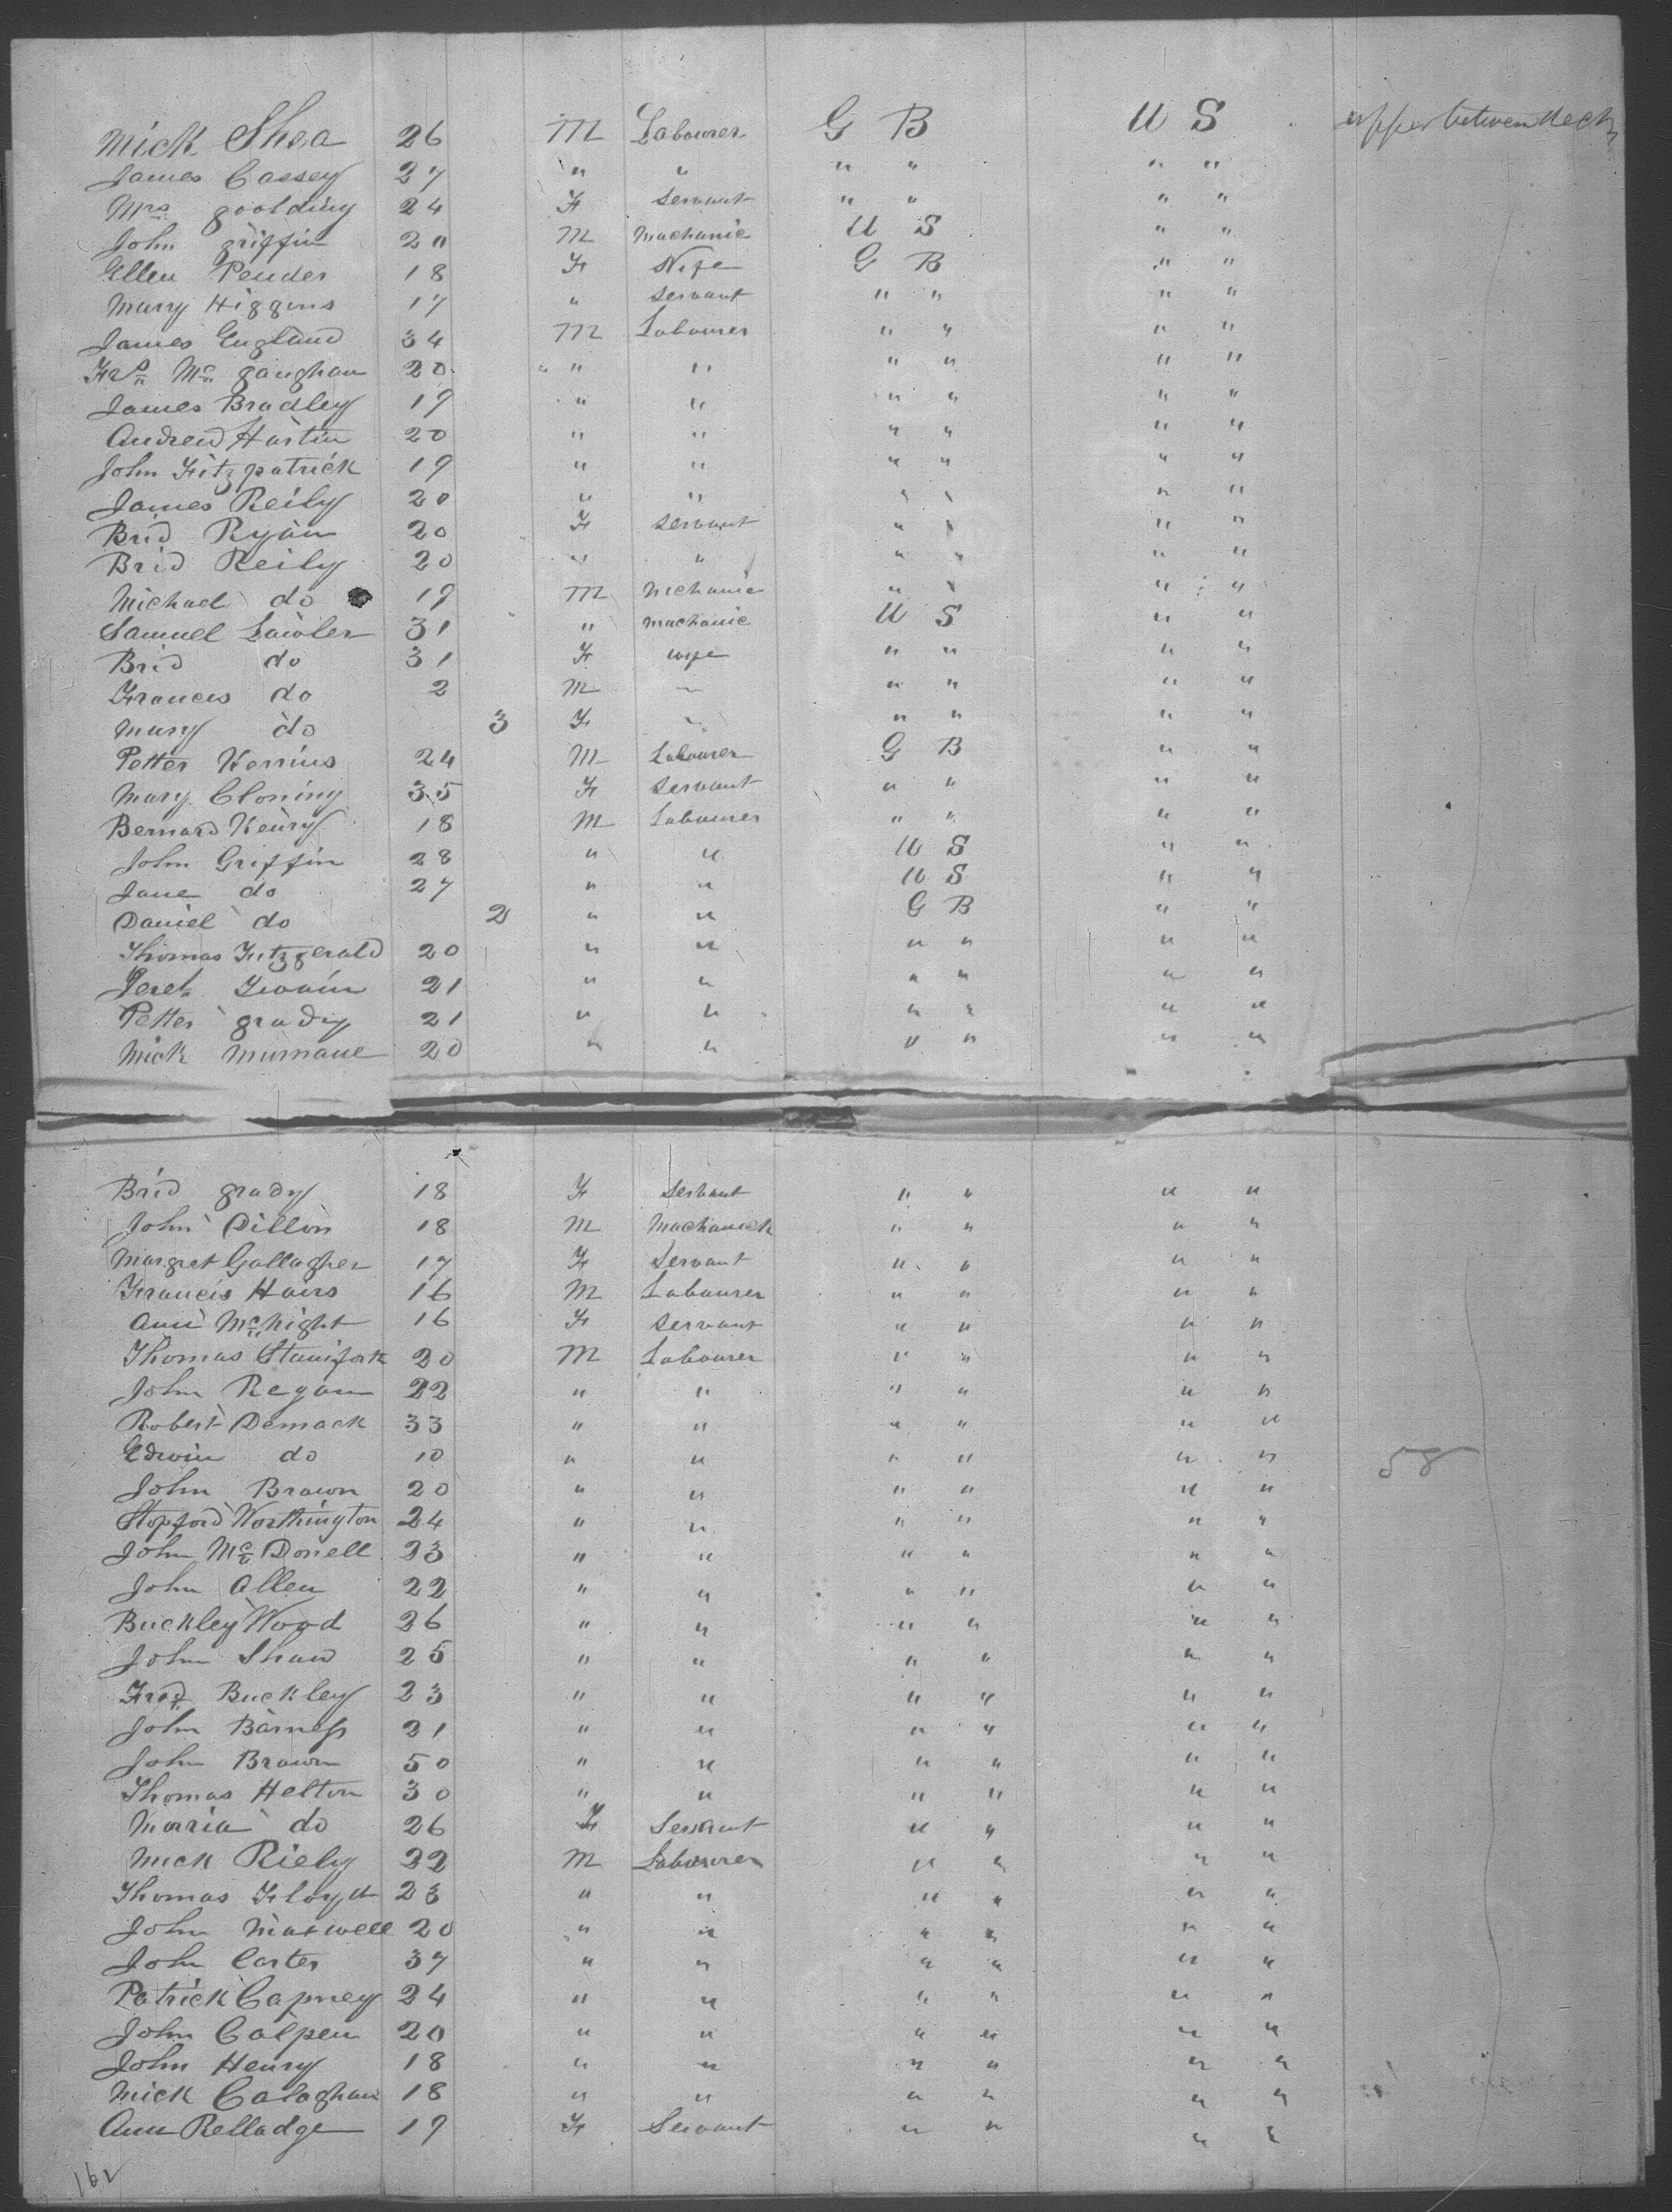 Mick Shea 26 M Labourer G B U S upper between decks
James Cassey 27 " " " " " "
Mrs goolding 24 F Servant " " " "
John griffin 20 M Machanic U S " "
Ellen Pender 18 F Wife G B " "
Mary Higgins 17 " Servant " " " "
James England 34 M Labourer " " " "
Frs Mc gaughan 20 " " " " " "
James Bradley 19 " " " " " "
Andrew Hastin 20 " " " " " "
John Fitzpatrick 19 " " " " " "
James Reily 20 " " " " " "
Brid Ryan 20 F Servant " " " "
Brid Reily 20 " " " " " "
Michael do 19 M Mchanic " " " "
Samuel Lawler 31 " Machanic U S " "
Brid do 31 F wife " " " "
Francis do 2 M ~ " " " "
Mary do 3 F ~ " " " "
Petter Kerrins 24 M Labourer G B " "
Mary Cloning 35 F Servant " " " "
Bernard Henry 18 M Labourer " " " "
John Griffin 28 " " U S " "
Jane do 27 " " U S " "
Daniel do 2 " " G B " "
Thomas Fitzgerald 20 " " " " " "
21 " " " " " "
Petter grady 21 " " " " " "
Mick Murnane 20 " " " " " "
Brid grady 18 F Servant " " " "
John Dillon 18 M Machanick " " " "
Margret Gallagher 17 F Servant " " " "
Francis Hairs 16 M Labourer " " " "
Ann McNight 16 F Servant " " " "
Thomas Staniforth 20 M Labourer " " " "
John Regan 22 " " " " " "
Robert Demack 33 " " " " " "
Edwin do 10 " " " " " " 58
John Brown 20 " " " " " "
Stopford Worthington 24 " " " " " "
John Mc Donell 23 " " " " " "
John Allen 22 " " " " " "
Buckley Wood 26 " " " " " "
John Shaw 25 " " " " " "
Fred Buckley 23 " " " " " "
John Barness 21 " " " " " "
John Brown 50 " " " " " "
Thomas Helton 30 " " " " " "
Marria do 26 F Servant " " " "
Mick Riely 22 M Labourer " " " "
Thomas Floyd 23 " " " " " "
John Maxwell 20 " " " " " "
John Carter 37 " " " " " "
Patrick Capney 24 " " " " " "
John Calpen 20 " " " " " "
John Henry 18 " " " " " "
Mick Calaghan 18 " " " " " "
Ann Relladge 19 F Servant " " " "
162